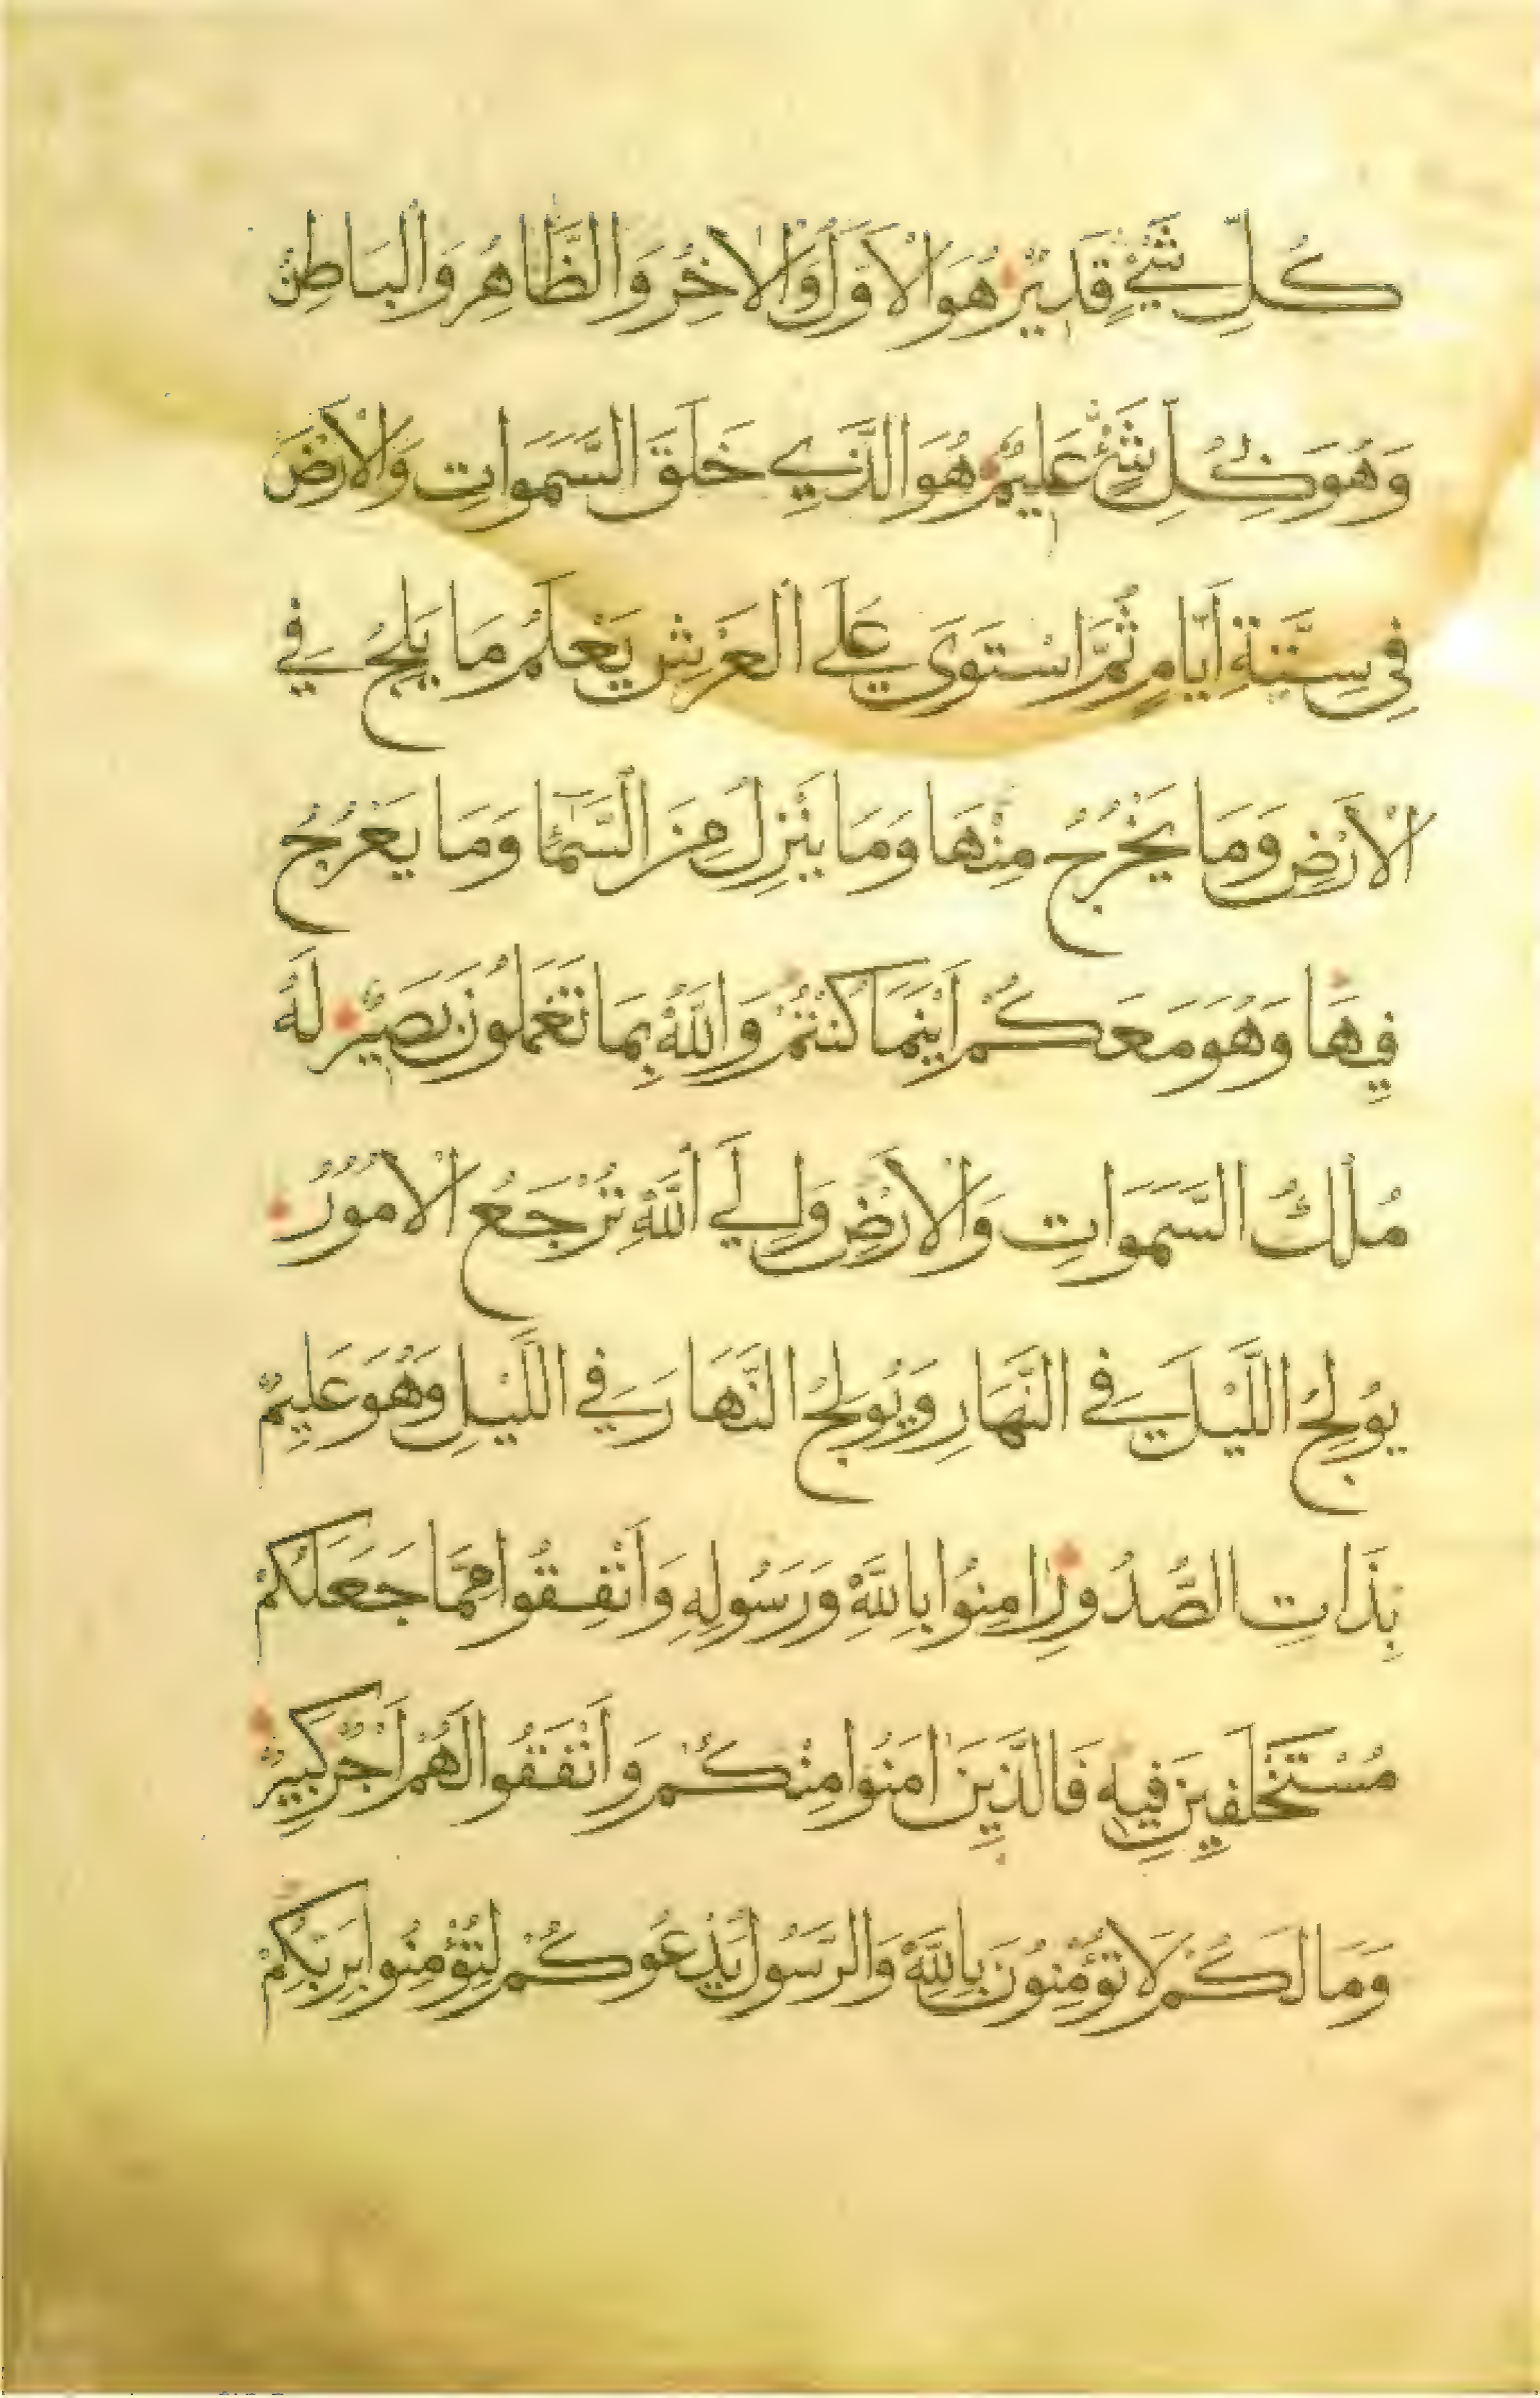 كُلِّ شَيْءٍ قَدِيرٌ هُوَ الْاَوَّلُ وَالْاٰخِرُ وَالظَّاهِرُ وَالْبَاطِنُ
وَهُوَ بِكُلِّ شَيْءٍ عَلِيمٌ هُوَ الَّذِي خَلَقَ السَّمَوَاتِ وَالْاَرْضَ
فِي سِتَّةِ اَيَّامٍ ثُمَّ اسْتَوَى عَلَى الْعَرْشِ يَعْلَمُ مَا يَلِجُ فِي
الْاَرْضِ وَمَا يَخْرُجُ مِنْهَا وَمَا يَنْزِلُ مِنَ السَّمَاءِ وَمَا يَعْرُجُ
فِيهَا وَهُوَ مَعَكُمْ اَيْنَمَا كُنْتُمْ وَاللَّهُ بِمَا تَعْمَلُونَ بَصِيرٌ لَهُ
مُلْكُ السَّمَوَاتِ وَالْاَرْضِ وَاِلَى اللَّهِ تُرْجَعُ الْاُمُورُ
يُولِجُ اللَّيْلَ فِي النَّهَارِ وَيُولِجُ النَّهَارَ فِي اللَّيْلِ وَهُوَ عَلِيمٌ
بِذَاتِ الصُّدُورِ اٰمِنُوا بِاللَّهِ وَرَسُولِهِ وَاَنْفِقُوا مِمَّا جَعَلَكُمْ
مُسْتَخْلَفِينَ فِيهِ فَالَّذِينَ اٰمَنُوا مِنْكُمْ وَاَنْفَقُوا لَهُمْ اَجْرٌ كَبِيرٌ
وَمَا لَكُمْ لَا تُؤْمِنُونَ بِاللَّهِ وَالرَّسُولُ يَدْعُوكُمْ لِتُؤْمِنُوا بِرَبِّكُمْ